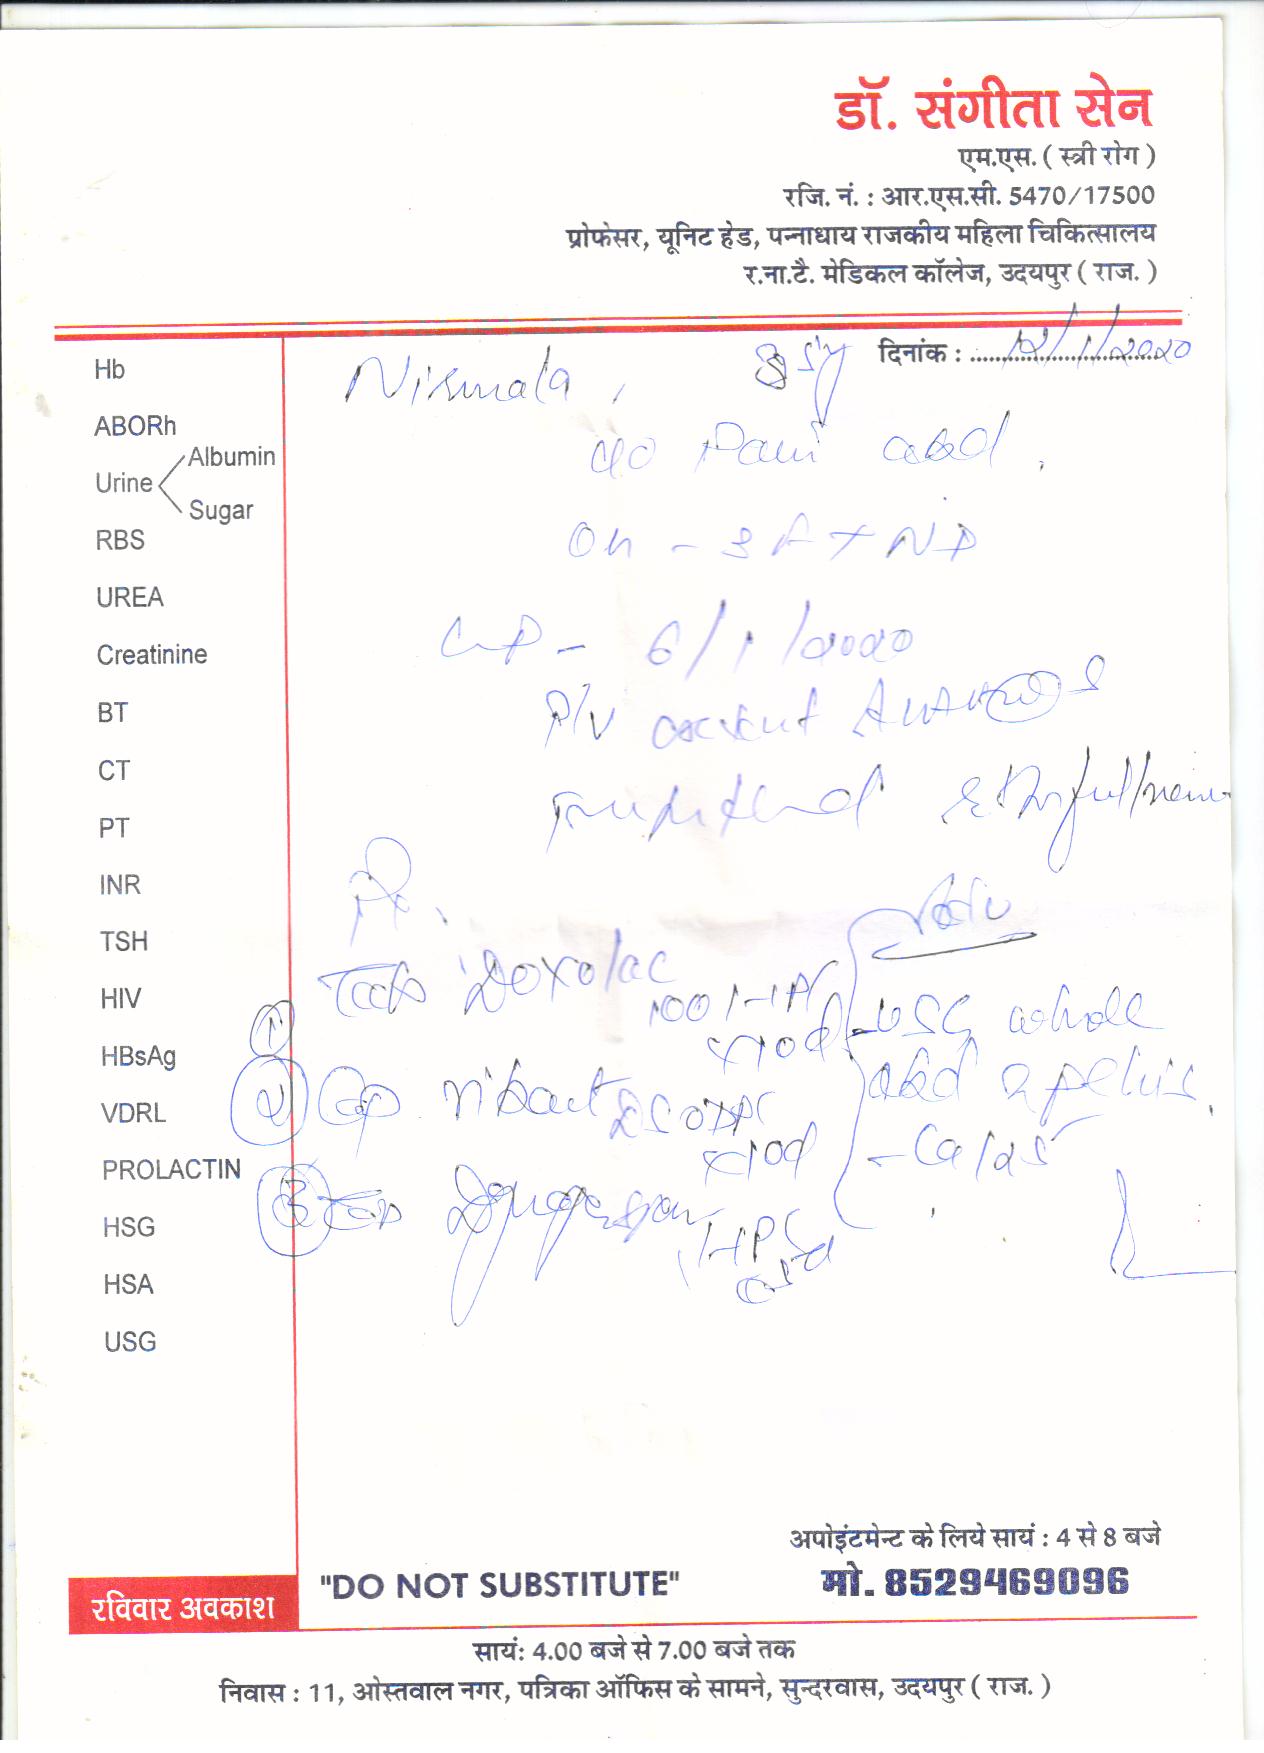 डॉ. संगीता सेन
एम.एस. ( स्त्री रोग )
रजि. नं. : आर.एस.सी. 5470/17500
प्रोफेसर, यूनिट हेड, पन्नाधाय राजकीय महिला चिकित्सालय
र.ना.टै. मेडिकल कॉलेज, उदयपुर ( राज. )
दिनांक : 12/1/2020
Nirmala,
c/o Pain abd.
6/1/2020
P/V
Rx.
Adv
Tab Doxolac
100 1-1 PC
x10d
- USG whole
abd & pelvis.
② Cap
x10d
- Ca125
③ Tab
Hb
ABORh
Urine
Albumin
Sugar
RBS
UREA
Creatinine
BT
CT
PT
INR
TSH
HIV
HBsAg
VDRL
PROLACTIN
HSG
HSA
USG
अपोइंटमेन्ट के लिये सायं : 4 से 8 बजे
"DO NOT SUBSTITUTE"
मो. 8529469096
रविवार अवकाश
सायं: 4.00 बजे से 7.00 बजे तक
निवास : 11, ओस्तवाल नगर, पत्रिका ऑफिस के सामने, सुन्दरवास, उदयपुर ( राज. )